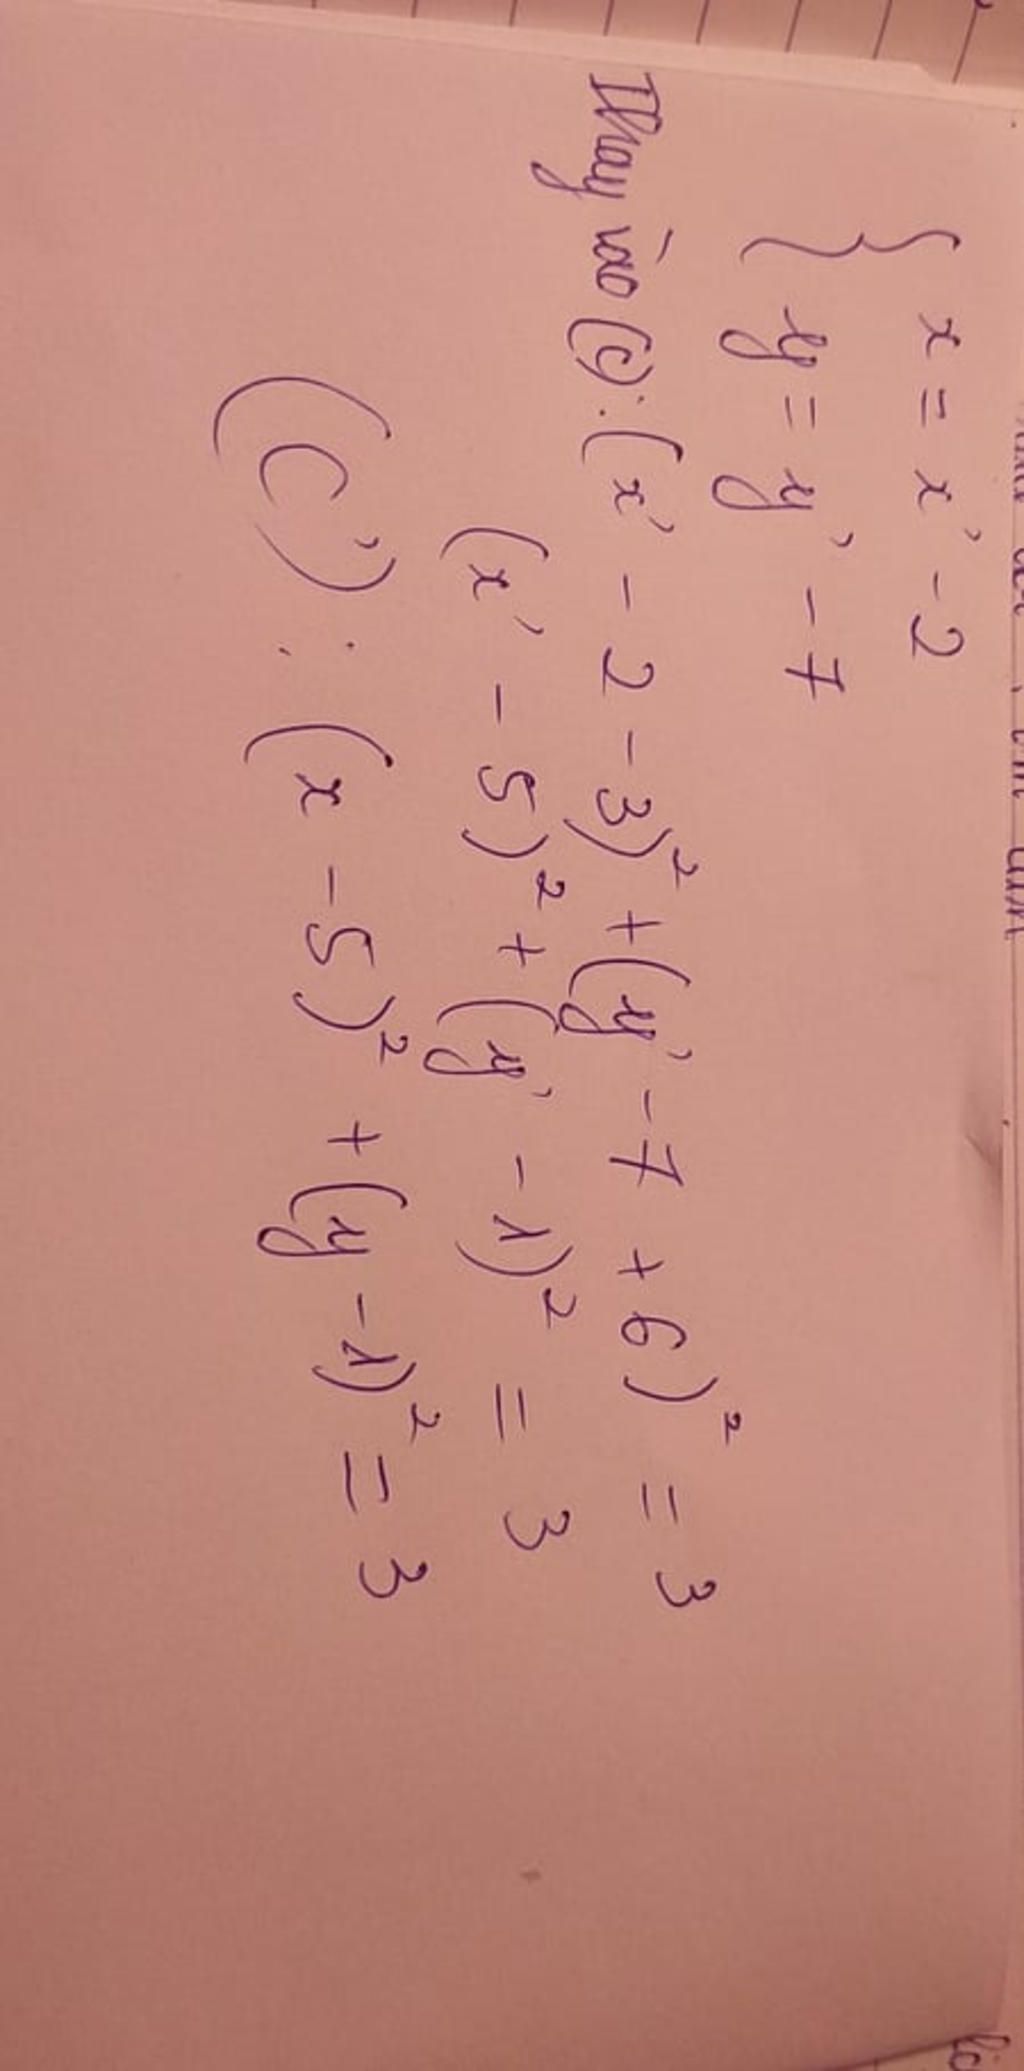 { x = x' - 2
y = y' - 7
Thay vào (C): (x' - 2 - 3)² + (y' - 7 + 6)² = 3
(x' - 5)² + (y' - 1)² = 3
(C'): (x - 5)² + (y - 1)² = 3